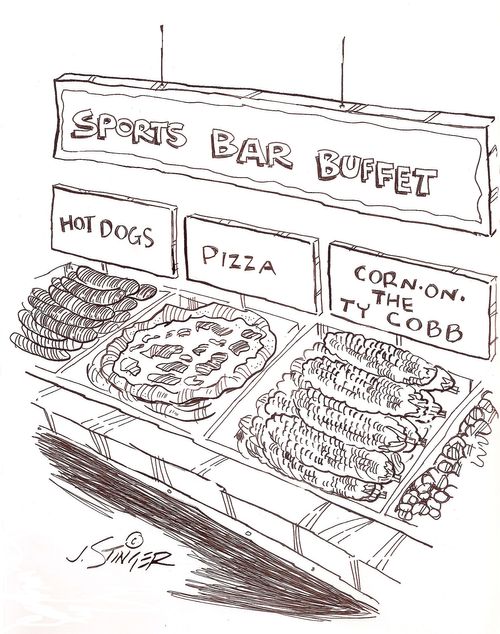 SPORTS BAR BUFFET
HOT DOGS
PIZZA
CORN·ON·
THE
TY COBB
©
J. STINGER